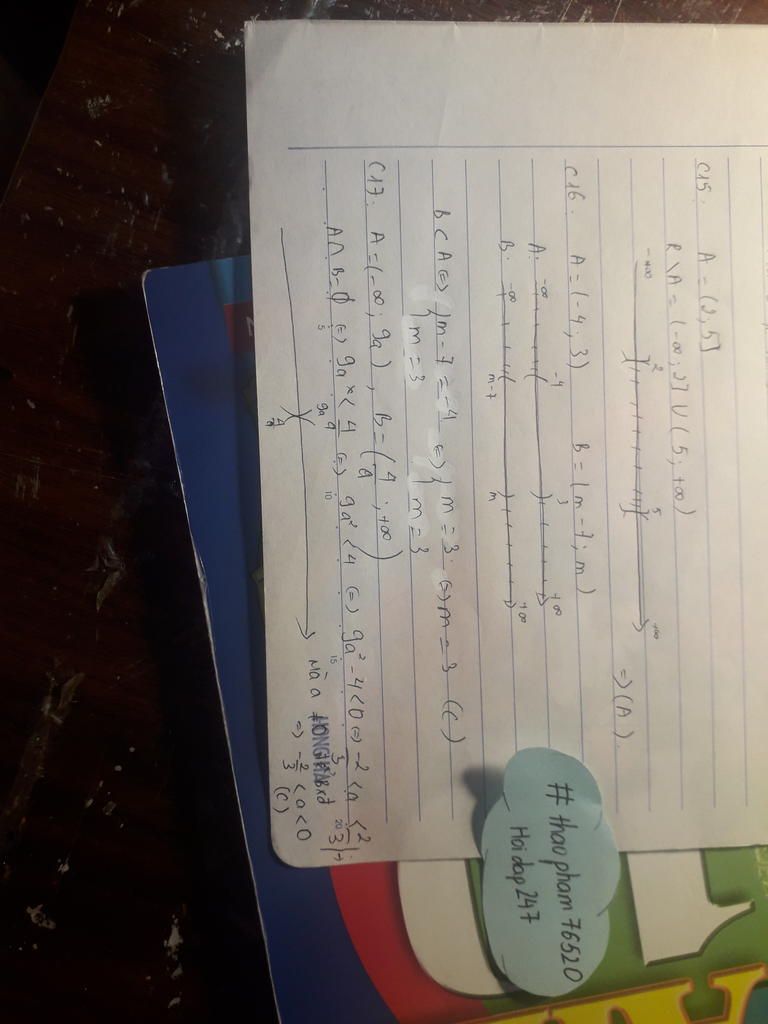 C15. A = (2; 5]
R \ A = (-∞; 2] ∪ (5; +∞)
-∞ 2 5 +∞
=> (A).
C16. A = (-4; 3) B = (m-7; m)
A: -∞ -4 3 +∞
B: -∞ m-7 m +∞
B ⊂ A <=> { m - 7 = -4 <=> { m = 3 <=> m = 3 (C)
{ m = 3 { m = 3
C17. A = (-∞; 9a), B = (4/a; +∞)
A ∩ B = ∅ <=> 9a < 4/a <=> 9a² < 4 <=> 9a² - 4 < 0 <=> -2/3 < a < 2/3
5 10 15 20
9a
Mà a
=> -2/3 < a < 0
(C)
# thaopham76520
Hoidap247